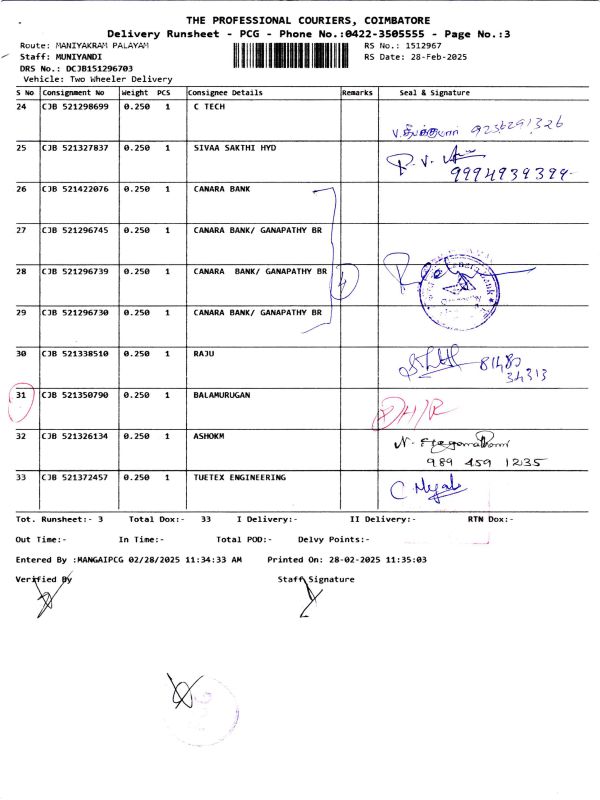 THE PROFESSIONAL COURIERS, COIMBATORE
Delivery Runsheet - PCG - Phone No.:0422-3505555 - Page No.:3
Route: MANIYAKRAM PALAYAM RS No.: 1512967
Staff: MUNIYANDI RS Date: 28-Feb-2025
DRS No.: DCJB151296703
Vehicle: Two Wheeler Delivery
S No Consignment No Weight PCS Consignee Details Remarks Seal & Signature
24 CJB 521298699 0.250 1 C TECH
9236291326
25 CJB 521327837 0.250 1 SIVAA SAKTHI HYD
9994939394
26 CJB 521422076 0.250 1 CANARA BANK
27 CJB 521296745 0.250 1 CANARA BANK/ GANAPATHY BR
28 CJB 521296739 0.250 1 CANARA BANK/ GANAPATHY BR
4
29 CJB 521296730 0.250 1 CANARA BANK/ GANAPATHY BR
30 CJB 521338510 0.250 1 RAJU
81480
34313
31 CJB 521350790 0.250 1 BALAMURUGAN
H/R
32 CJB 521326134 0.250 1 ASHOKM
989 459 1235
33 CJB 521372457 0.250 1 TUETEX ENGINEERING
Tot. Runsheet:- 3 Total Dox:- 33 I Delivery:- II Delivery:- RTN Dox:-
Out Time:- In Time:- Total POD:- Delvy Points:-
Entered By :MANGAIPCG 02/28/2025 11:34:33 AM Printed On: 28-02-2025 11:35:03
Verified By Staff Signature